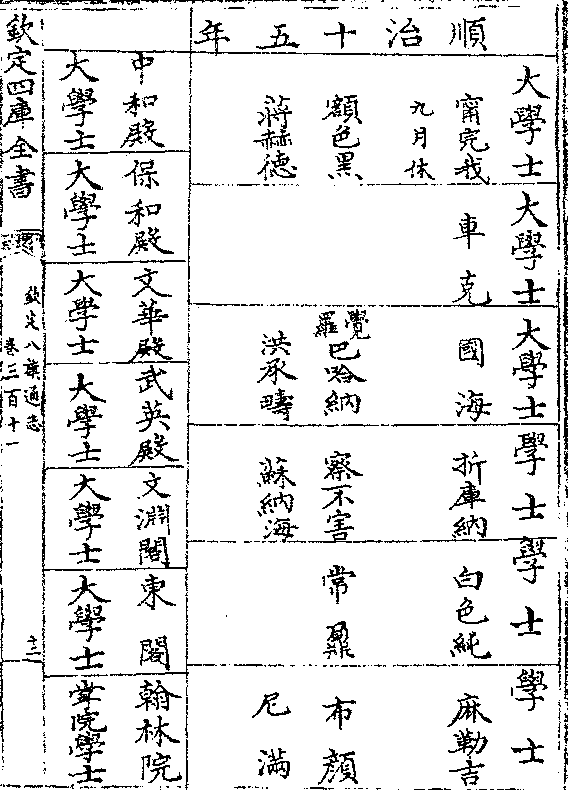 順治十五年
大學士 大學士 大學士 學士 學士 學士
甯完我 車克 國海 折庫納 白色純 麻勒吉
九月休
額色黑 覺羅巴哈納 察不害 常鼐 布顏
蔣赫德 洪承疇 蘇納海 尼滿
中和殿 保和殿 文華殿 武英殿 文淵閣 東閣 翰林院
大學士 大學士 大學士 大學士 大學士 大學士 掌院學士
欽定四庫全書
欽定八旗通志
卷三百十一
十二